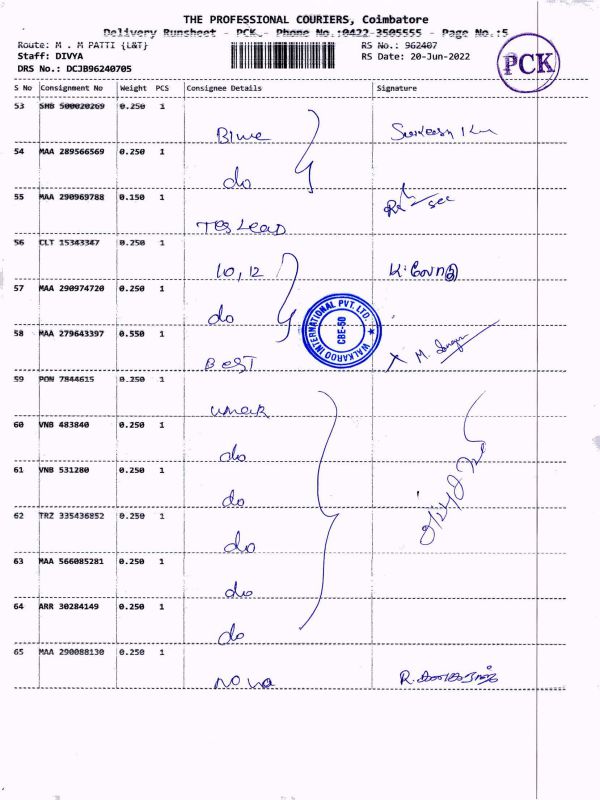 THE PROFESSIONAL COURIERS, Coimbatore
Delivery Runsheet - PCK - Phone No.:0422-3505555 - Page No.:5
Route: M . M PATTI {L&T}
RS No.: 962407
Staff: DIVYA
RS Date: 20-Jun-2022
DRS No.: DCJB96240705
PCK
S No Consignment No Weight PCS Consignee Details Signature
53 SHB 500020269 0.250 1
Blue
54 MAA 289566569 0.250 1
do
55 MAA 290969788 0.150 1
TES Lead
56 CLT 15343347 0.250 1
10, 12 K. Govn
57 MAA 290974720 0.250 1
do
WALKAROO INTERNATIONAL PVT. LTD.
CBE-50
58 MAA 279643397 0.550 1
BEST
59 PON 7844615 0.250 1
umar
60 VNB 483840 0.250 1
do
61 VNB 531280 0.250 1
do
62 TRZ 335436852 0.250 1
do
63 MAA 566085281 0.250 1
do
64 ARR 30284149 0.250 1
do
65 MAA 290088130 0.250 1
Nova